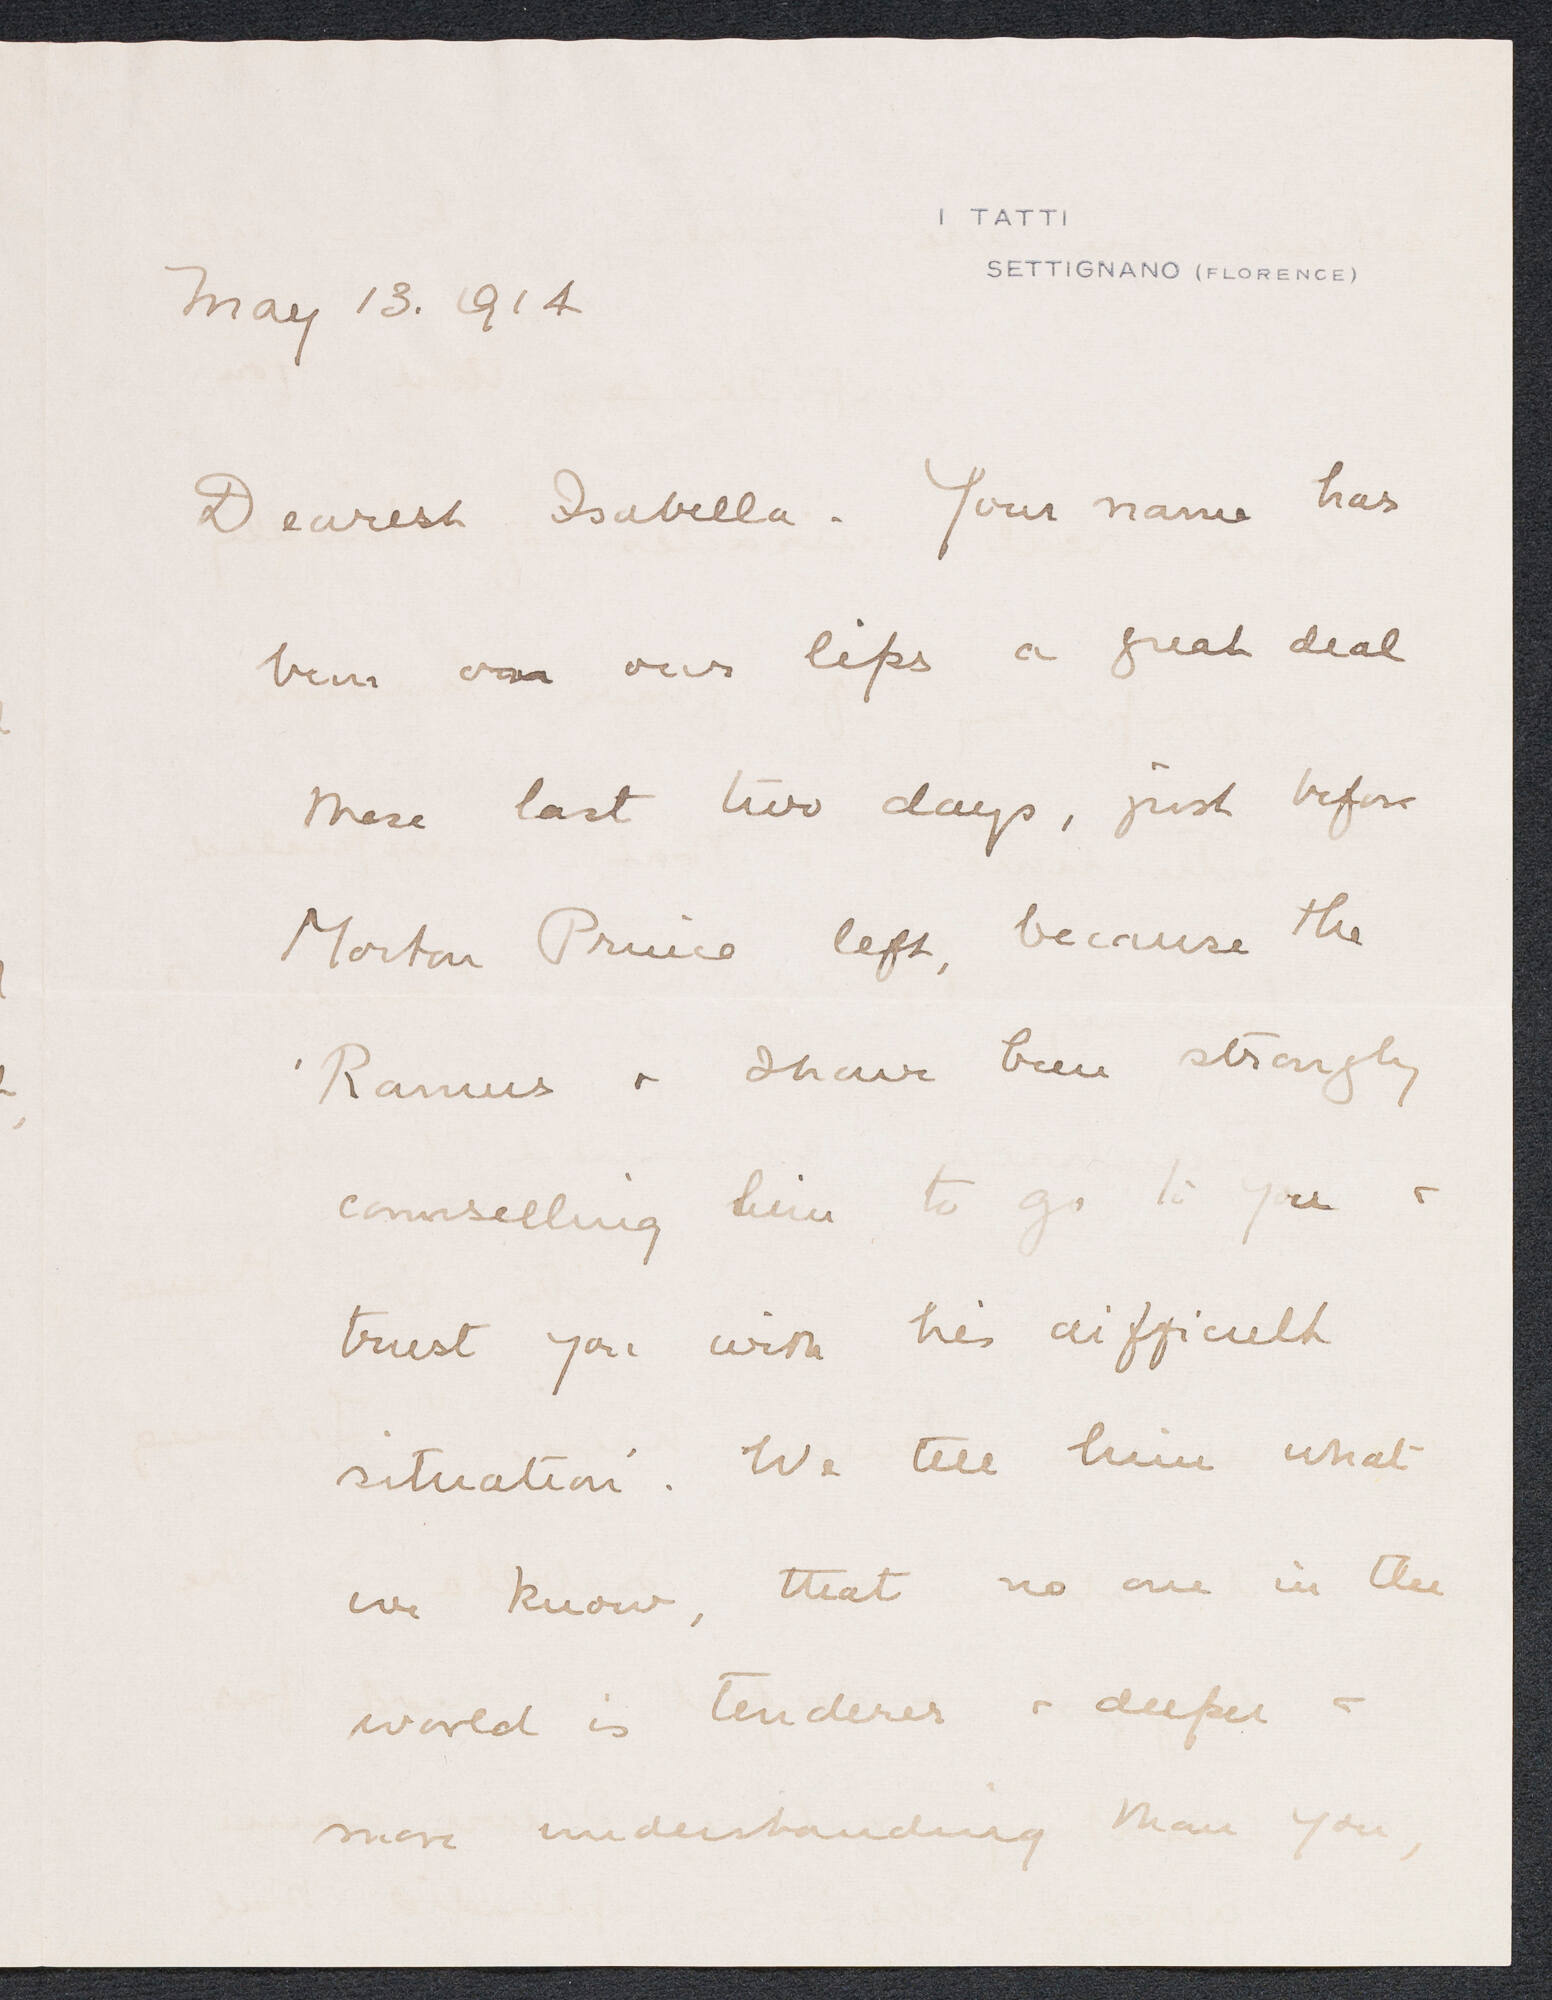 I TATTI
SETTIGNANO (FLORENCE)
May 13. 1914
Dearest Isabella. Your name has
been on our lips a great deal
these last two days, just before
Morton Prince left, because the
'Ramus & I have been strongly
counselling him to go to you &
trust you with his difficult
situation'. We tell him what
we know, that no one in the
world is tenderer & deeper &
more understanding than you,